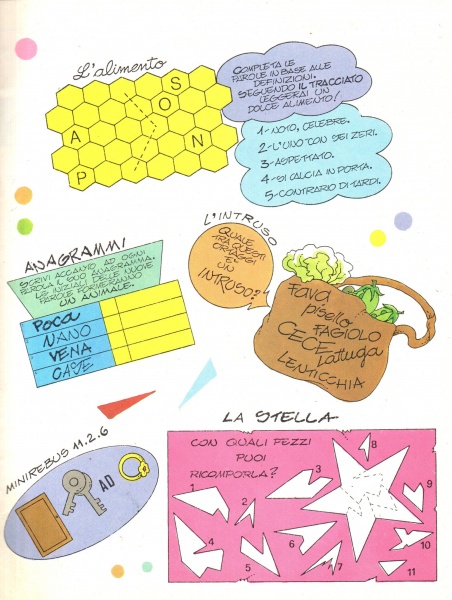 L'alimento
S
O
A
N
P
COMPLETA LE
PAROLE IN BASE ALLE
DEFINIZIONI.
SEGUENDO IL TRACCIATO
LEGGERAI UN
DOLCE ALIMENTO!
1-NOTO, CELEBRE.
2-L'UNO CON SEI ZERI.
3-ASPETTATO.
4-SI CALCIA IN PORTA.
5-CONTRARIO DI TARDI.
ANAGRAMMI
SCRIVI ACCANTO AD OGNI
PAROLA IL SUO ANAGRAMMA.
LE INIZIALI DELLE NUOVE
PAROLE FORMERANNO
UN ANIMALE.
POCA
NANO
VENA
L'INTRUSO
QUALE
TRA QUESTI
ORTAGGI
E' UN
INTRUSO?
FAVA
PISELLO
FAGIOLO
CECE
LATTUGA
LENTICCHIA
MINIREBUS 11.2.6
AD
LA STELLA
CON QUALI PEZZI
PUOI
RICOMPORLA?
1
2
3
4
5
6
7
8
9
10
11